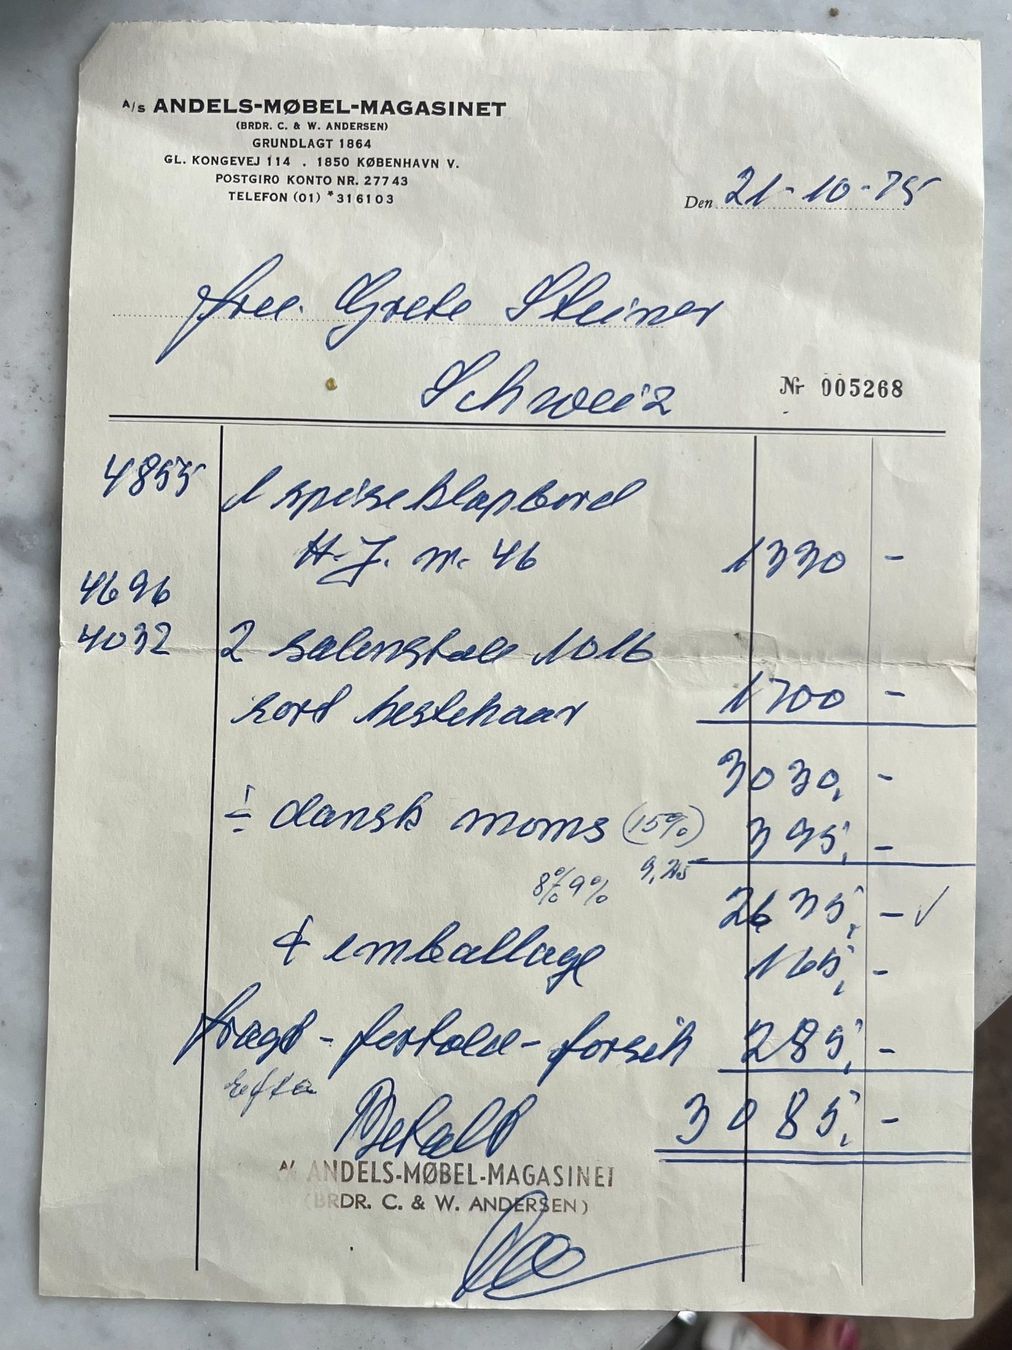 A/S ANDELS-MØBEL-MAGASINET
(BRDR. C. & W. ANDERSEN)
GRUNDLAGT 1864
GL. KONGEVEJ 114 . 1850 KØBENHAVN V.
POSTGIRO KONTO NR. 27743
TELEFON (01) *316103
Den 21-10-75
Grete Steiner
Schweiz
Nr 005268
4855 1 spiseklapbord
H.J. m. 46 1330 -
4696
4032 2 1016
sort hestehaar 1700 -
3030, -
÷ dansk moms (15%) 395, -
8% 9% 9,25
2635, - ✓
+ emballage 165, -
fragt - fortold - forsik 285, -
Efta
Betalt 3085, -
A/S ANDELS-MØBEL-MAGASINET
(BRDR. C. & W. ANDERSEN)